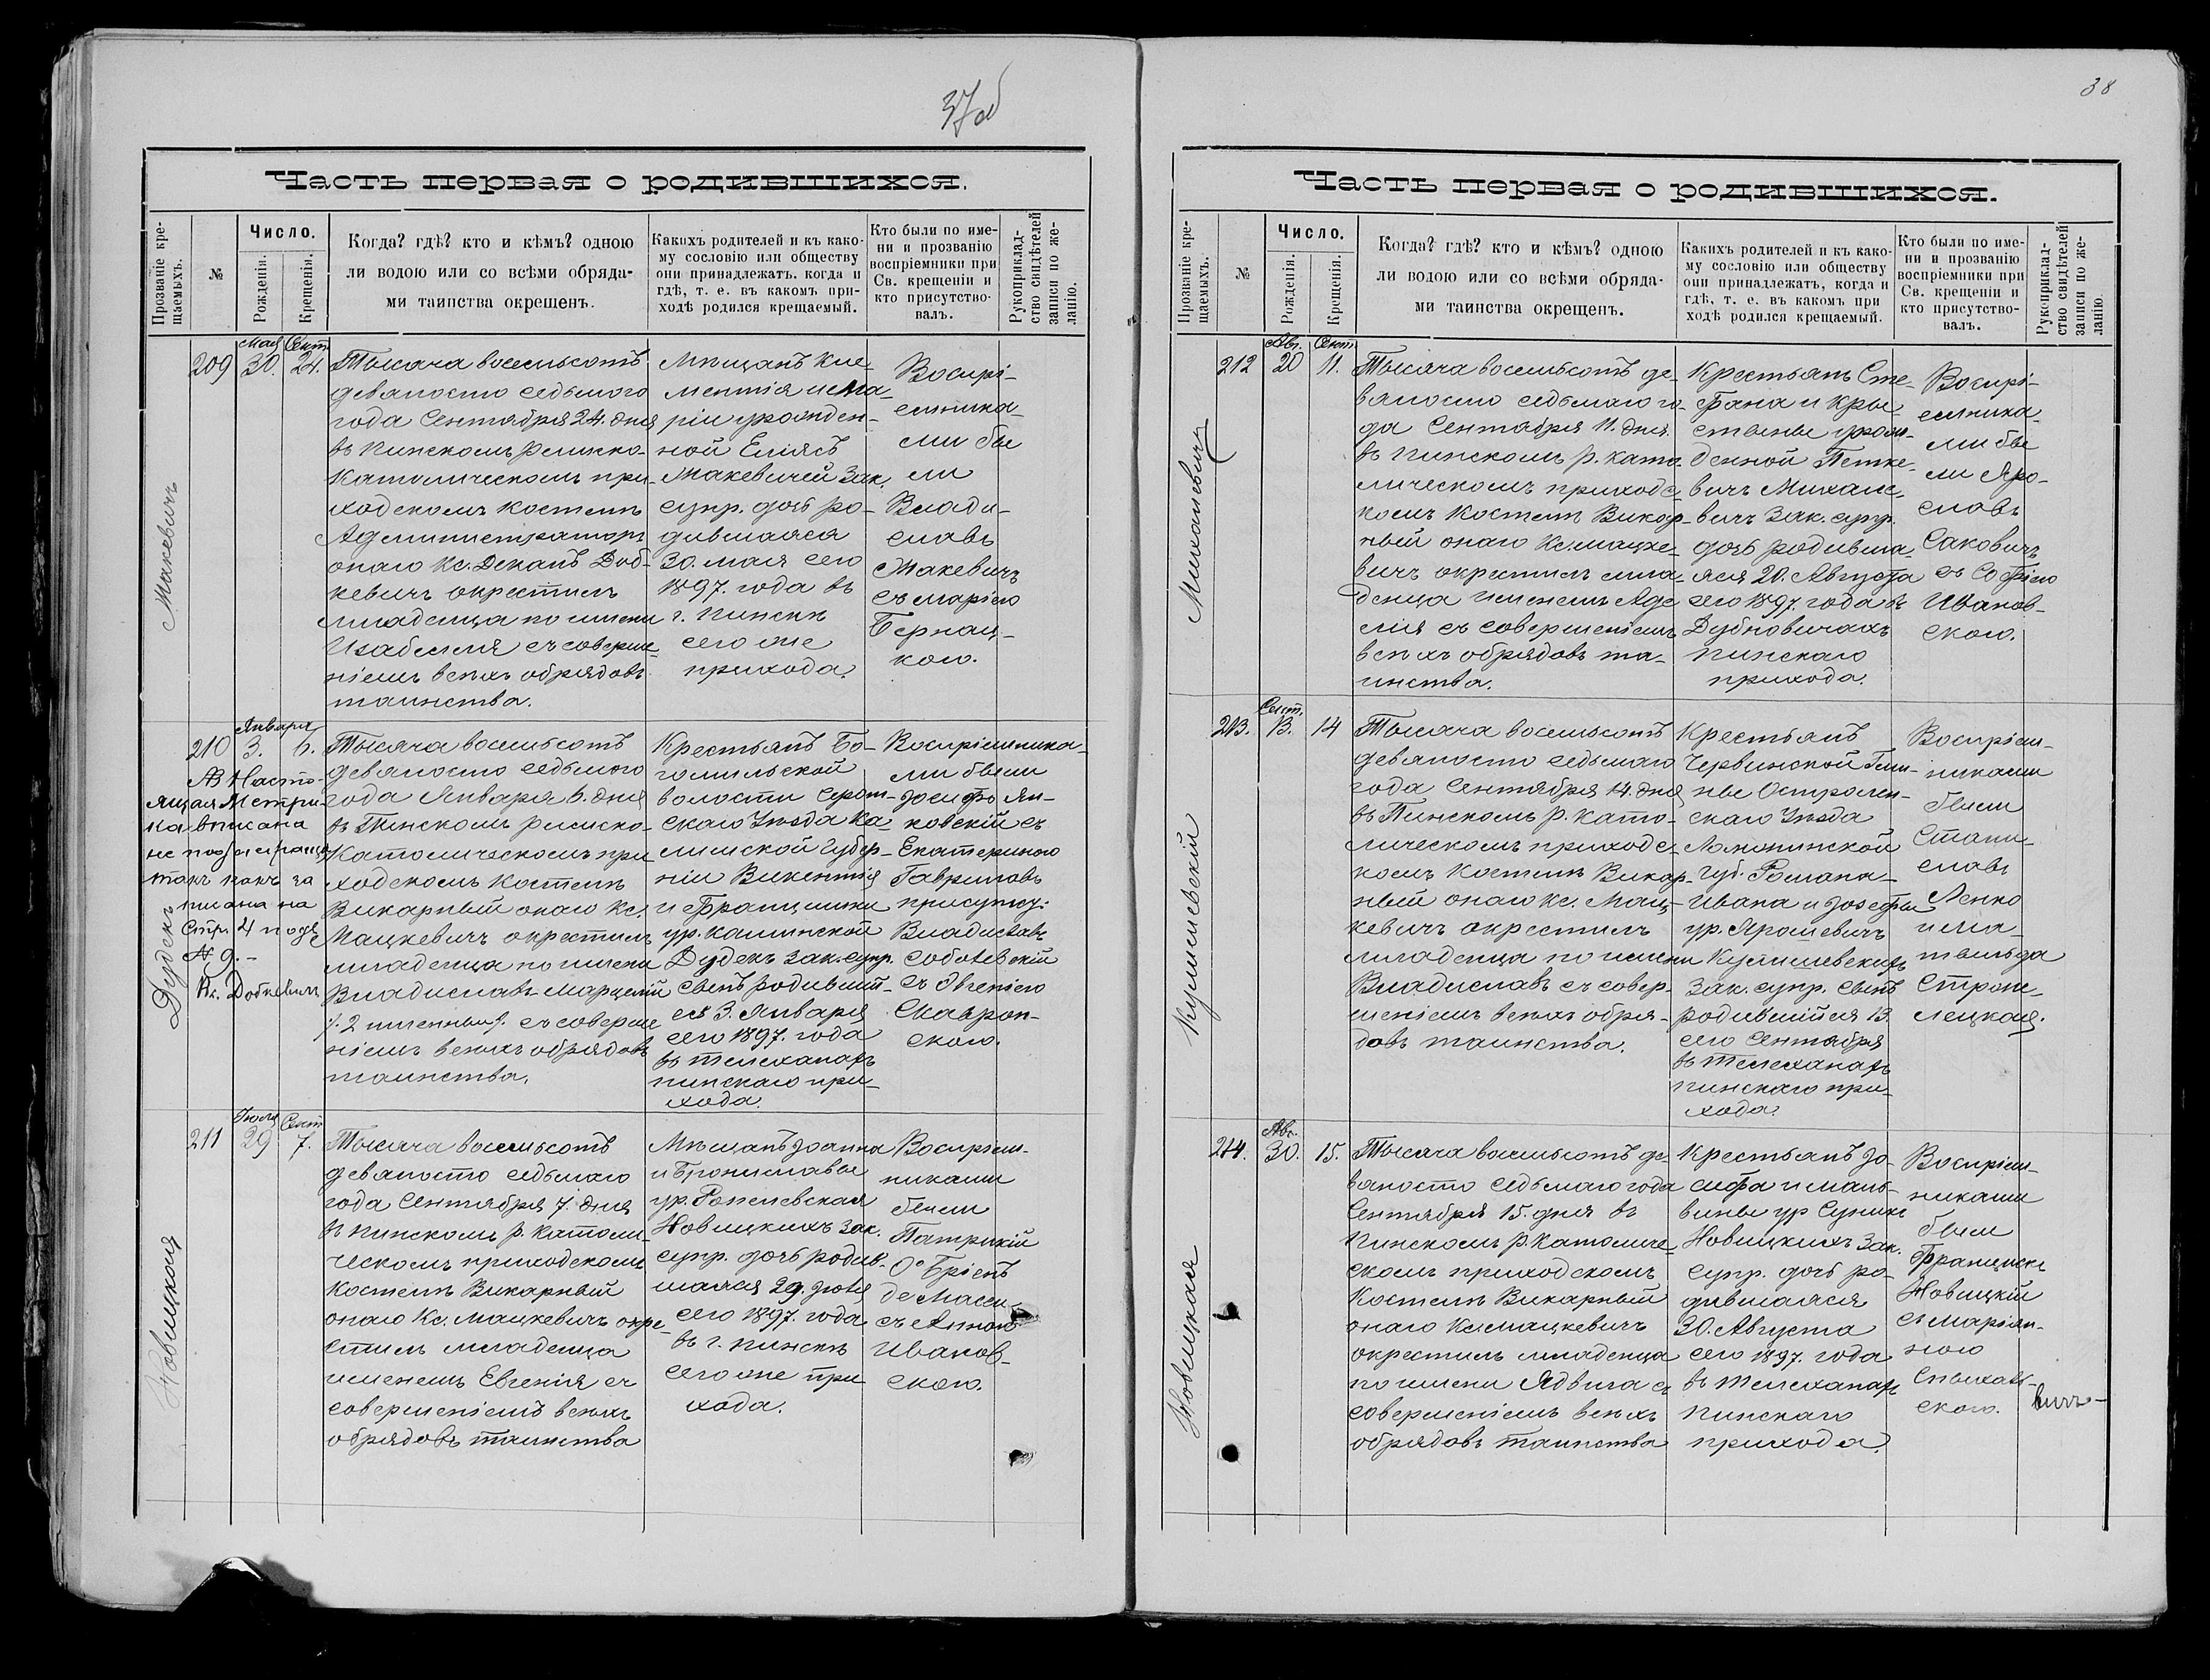 37об
Часть первая о родившихся.
Прозваніе кре-
щаемыхъ.
№
Число.
Рожденія.
Крещенія.
Когда? гдѣ? кто и кѣмъ? одною
ли водою или со всѣми обряда-
ми таинства окрещенъ.
Какихъ родителей и къ како-
му сословію или обществу
они принадлежатъ. когда и
гдѣ, т. е. въ какомъ при-
ходѣ родился крещаемый.
Кто были по име-
ни и прозванію
воспріемники при
Св. крещеніи и
кто присутство-
валъ.
Рукоприклад-
ство свидѣтелей
записи по же-
ланію.
Макевичъ
209
Мая
30.
Сент.
24.
Тысяча восемьсотъ
девяносто седьмого
года Сентября 24. дня
въ Пинскомъ римско-
католическомъ при-
ходскомъ костелѣ
Администраторъ
онаго Кс. Деканъ Доб-
кевичъ окрестилъ
младенца по имени
Изабелля съ соверше-
ніемъ всѣхъ обрядовъ
таинства.
Мѣщанъ Кле-
ментія и Ма-
ріи урожден-
ной Еліясъ
Макевичей Зак.
супр. дочь ро-
дившаяся
30. мая сего
1897. года въ
г. Пинскѣ
сего же
прихода.
Воспрі-
емника-
ми бы
ли
Влади-
славъ
Макевичъ
съ Маріею
Бернац-
кою.
Дудекъ
210
Января
3.
6.
NB Насто-
ящая Метри-
ка вписана
не подлежаще
такъ какъ за
писана на
стр. 4 подъ
№ 9. –
Кс. Добкевичъ
Тысяча восемьсотъ
девяносто седьмого
года Января 6. дня
въ Пинскомъ римско-
католическомъ при
ходскомъ костелѣ
Викарный онаго Кс.
Мацкевичъ окрестилъ
младенца по имени
Владиславъ-Марцелій
/. 2 именный/. съ соверше
ніемъ всѣхъ обрядовъ
таинства.
Крестьянъ Бо-
гомильской
волости Серат-
скаго Уѣзда Ка-
лишской Губер-
ніи Викентія
и Францишки
ур. Калинской
Дудекъ зак. супр.
сынъ родивший-
ся 3. Января
сего 1897. года
въ Телеханахъ
пинскаго при-
хода.
Воспріемника-
ми были
Іосифъ Ян-
ковскій съ
Екатериною
Гавриловъ
присутс.:
Владиславъ
Соболевскій
съ Евгеніею
Скаврон-
скою.
Новицкая
211
Іюля
29
Сент
7.
Тысяча восемьсотъ
девяносто седьмаго
года Сентября 7. дня
въ Пинскомъ р. католи-
ческомъ приходскомъ
костелѣ Викарный
онаго Кс. Мацкевичъ окре-
стилъ младенца
именемъ Евгенія съ
совершеніемъ всѣхъ
обрядовъ таинства
Мѣщанъ Іоанна
и Брониславы
ур. Ронпевская
Новицкихъ зак.
супр. дочь родив-
шаяся 29. Іюля
сего 1897. года
въ г. Пинскѣ
сего же при
хода.
Воспріем-
никами
были
Патрикій
О'Бріенъ
де Ласси
съ Анною
Иванов-
скою.
38
Часть первая о родившихся.
Прозваніе кре-
щаемыхъ.
№
Число.
Рожденія.
Крещенія.
Когда? гдѣ? кто и кѣмъ? одною
ли водою или со всѣми обряда-
ми таинства окрещенъ.
Какихъ родителей и къ како-
му сословію или обществу
они принадлежатъ, когда и
гдѣ, т. е. въ какомъ при
ходѣ родился крещаемый.
Кто были по име-
ни и прозванію
воспріемники при
Св. крещеніи и
кто присутство-
валъ.
Рукоприклад-
ство свидѣтелей
записи по же-
ланію.
Михалевичъ
212
Авг.
20
Сент.
11.
Тысяча восемьсотъ де-
вяносто седьмаго го-
да Сентября 11. дня
въ Пинскомъ р. като-
лическомъ приходс-
комъ костелѣ Викар-
ный онаго Кс. Мацке-
вичъ окрестилъ мла-
денца именемъ Аде
лія съ совершеніемъ
всѣхъ обрядовъ та-
инства.
Крестьянъ Сте-
фана и Кры-
стыны урож-
денной Петке-
вичъ Михале-
вичъ Зак. супр.
дочь родивша-
яся 20. Августа
сего 1897. года въ
Дубновичахъ
пинскаго
прихода.
Воспрі-
емника-
ми бы
ли Яро-
славъ
Саковичъ
съ Софіею
Иванов-
скою.
Кулишевскій
213.
Сент.
13.
14
Тысяча восемьсотъ
девяносто седьмаго
года Сентября 14. дня
въ Пинскомъ р. като-
лическомъ приходс-
комъ костелѣ Викар-
ный онаго Кс. Мац-
кевичъ окрестилъ
младенца по имени
Владиславъ съ совер-
шеніемъ всѣхъ обря-
довъ таинства.
Крестьянъ
Червинской Гми-
ны Остролен-
скаго Уѣзда
Ломжинской
губ. Романа-
Ивана и Іозефы
ур. Ярошевичъ
Кулишевскихъ
зак. супр. сынъ
родившійся 13.
сего Сентября
въ Телеханахъ
пинскаго при-
хода.
Воспріем-
никами
были
Стани-
славъ
Ленко
и Ма-
тыльда
Строже-
лецкая.
Новицкая
214.
Авг.
30.
15.
Тысяча восемьсотъ де-
вяносто седьмаго года
Сентября 15. дня въ
Пинскомъ р. католиче-
скомъ приходскомъ
костелѣ Викарный
онаго Кс. Мацкевичъ
окрестилъ младенца
по имени Ядвига съ
совершеніемъ всѣхъ
обрядовъ таинства
Крестьянъ Іо-
сифа и Маль-
вины ур Сулик
Новицкихъ зак.
супр. дочь ро-
дившаяся
30. Августа
сего 1897. года
въ Телеханахъ
Пинскаго
прихода.
Воспріем-
никами
были
Францискъ
Новицкій
съ Маріан-
ною
Спыхаль-
скою.
вичъ –